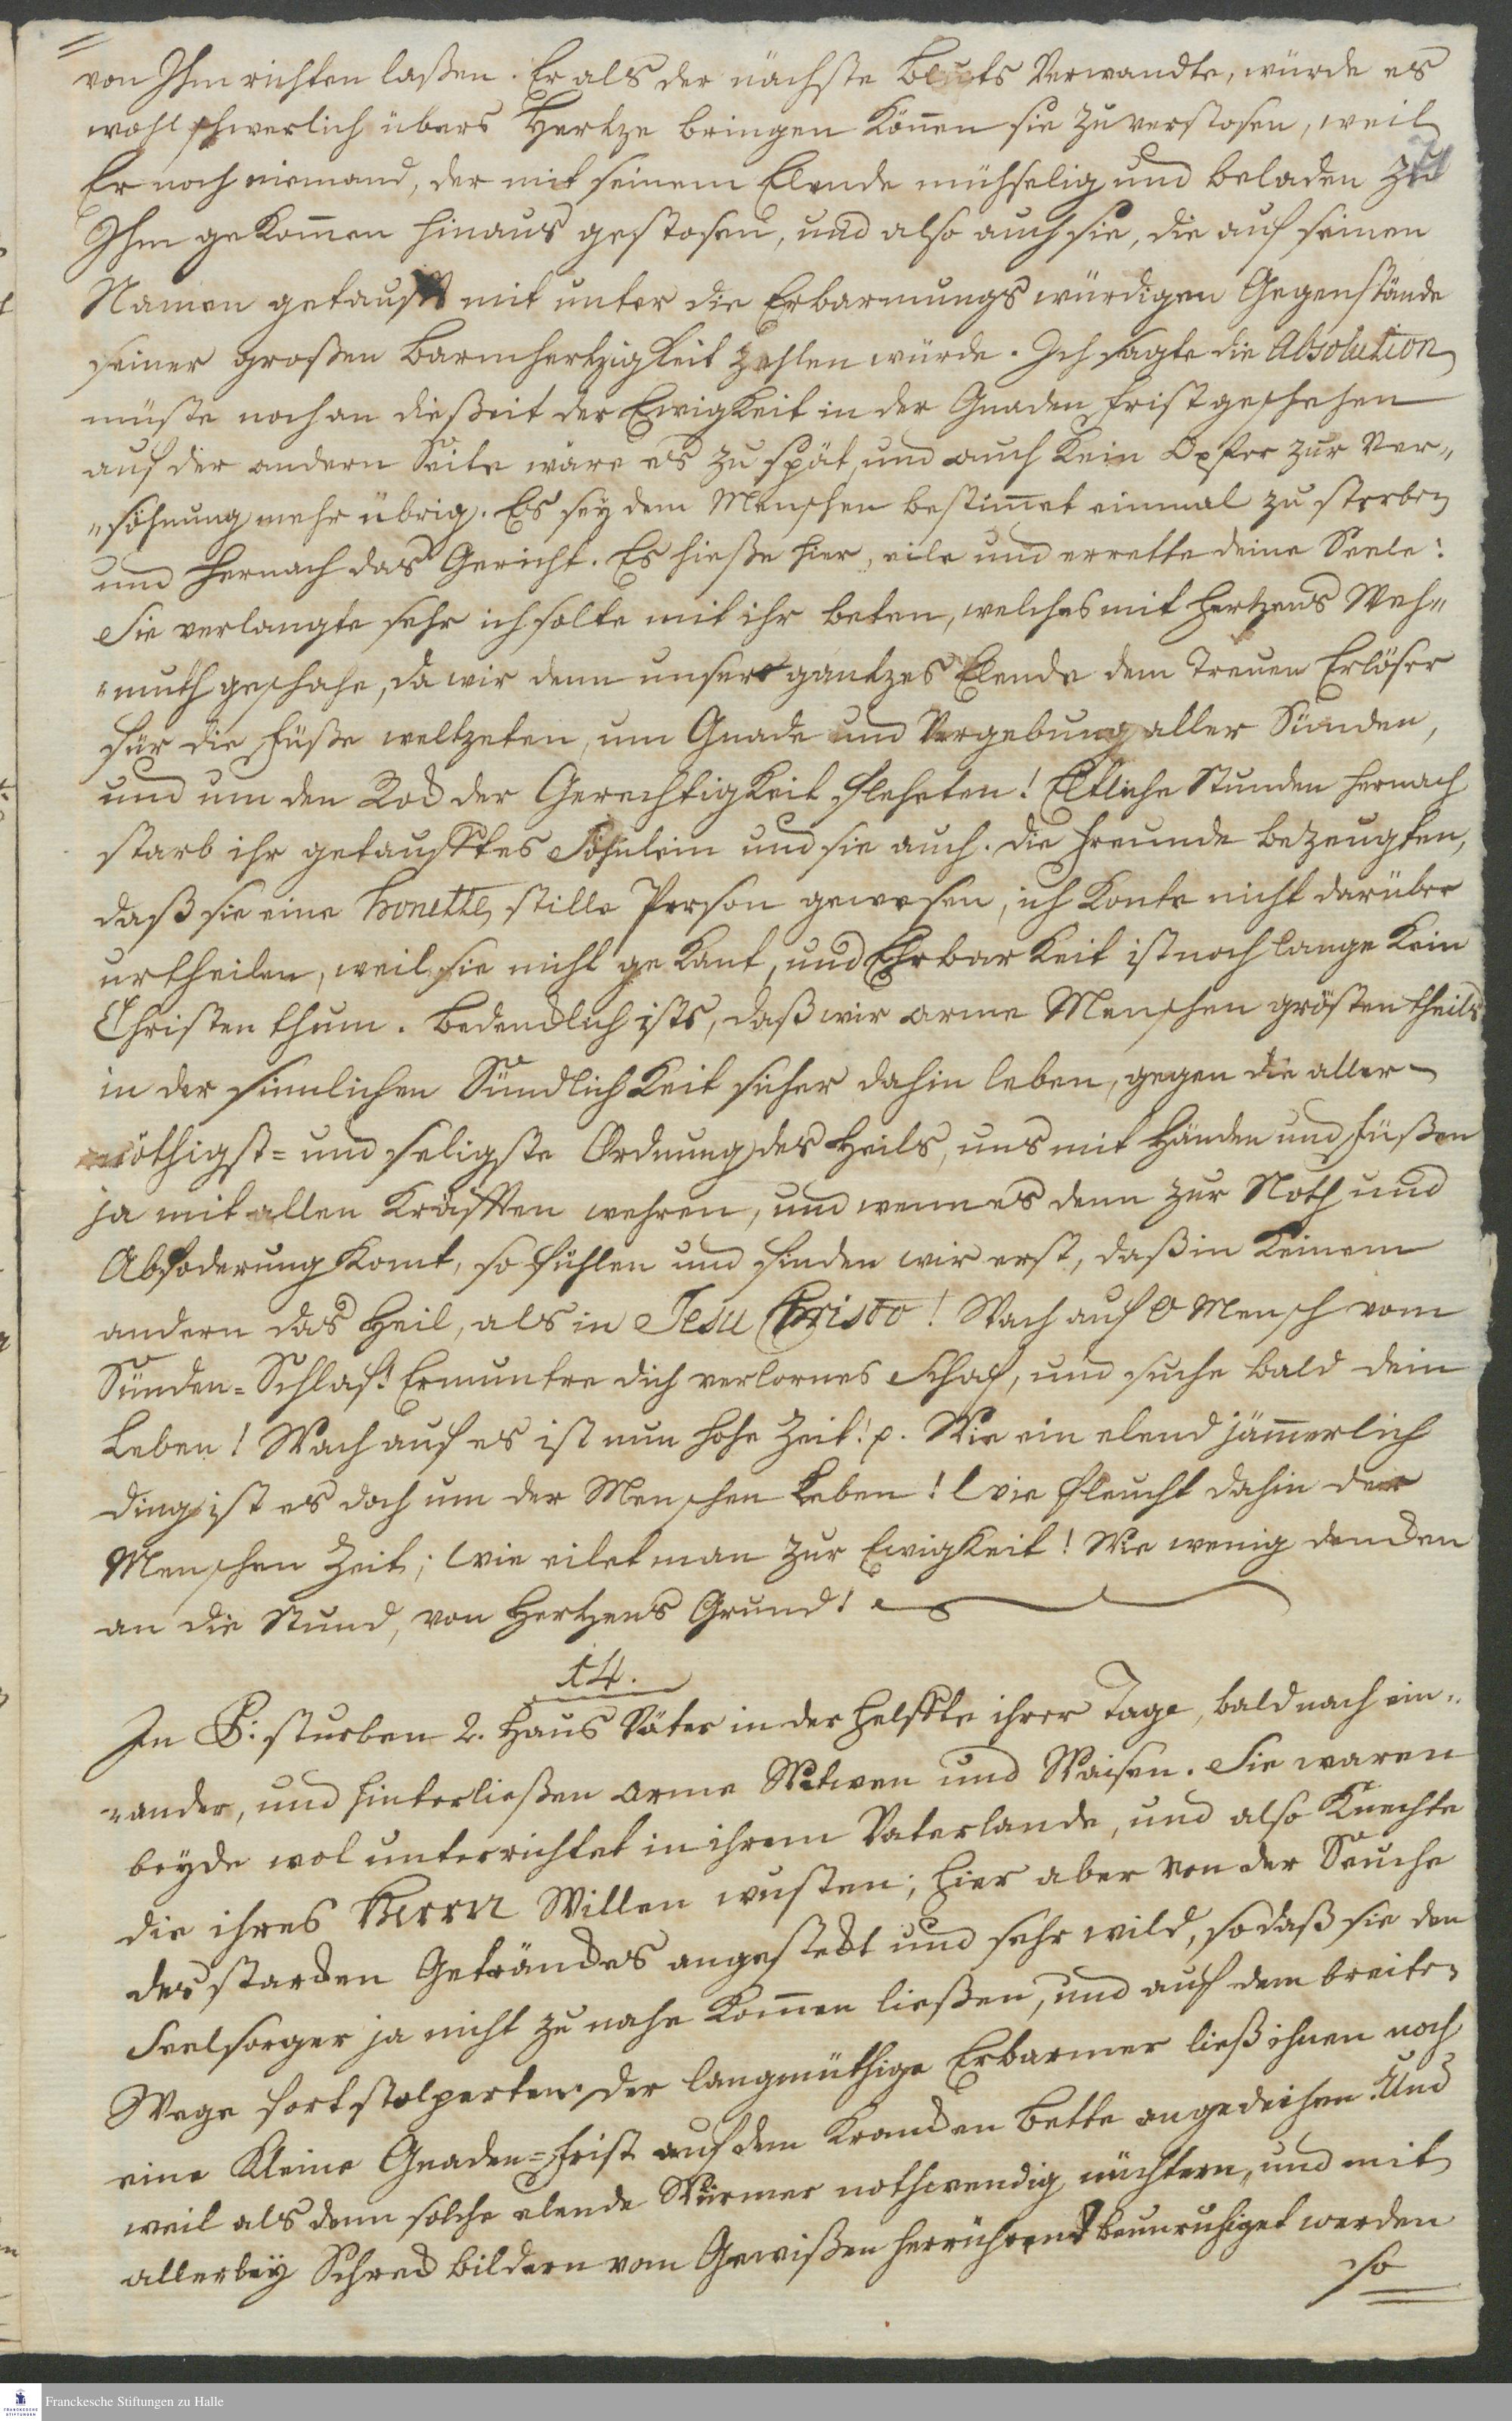 von Ihm richten laßen. Er als der nächste Bluts Verwandte, würde es
wohl schwerlich übers Hertze bringen können sie zu verstosen, weil
Er noch niemand, der mit seinem Elende mühselig und beladen zu
Ihm gekom̄en hinaus gestosen, und also auch sie, die auf seinen
Namen getaufft mit unter die Erbarmungs würdigen Gegenstände
seiner großen Barmhertzigkeit zehlen würde. Ich sagte die Absolution
müste noch an dießeit der Ewigkeit in der Gnaden frist geschehen
auf der andern Seite wäre es zu spät, und auch kein Opfer zur Ver„
„söhnung mehr übrig. Es sey dem Menschen bestim̄et einmal zu sterben
und hernach das Gericht. Es hieße hier, eile und errette deine Seele:
Sie verlangte sehr ich solte mit ihr beten, welches mit Hertzens Weh„
„muth geschahe, da wir denn unser gantzes Elende dem Treuen Erlöser
für die Füße weltzeten, um Gnade und Vergebung aller Sünden,
und um den Rock der Gerechtigkeit fleheten! Etliche Stunden hernach
starb ihr getaufftes Söhnlein und sie auch. Die Freunde bezeugten,
daß sie eine honette, stille Person gewesen, ich konte nicht darüber
urtheilen, weil sie nicht gekant, und Ehrbarkeit ist noch lange kein
Christenthum. Bedencklich ists, daß wir arme Menschen grösten theils
in der sinnlichen Sündlichkeit sicher dahin leben, gegen die aller-
nöthigst= und seligste Ordnung des Heils, uns mit Händen und Füßen
ja mit allen Kräfften wehren, und wenn es denn zur Noth und
Abfoderung komt, so fühlen und finden wir erst, daß in keinem
andern das Heil, als in Jesu Christo! Wach auf o Mensch vom
Sünden=Schlaf! Ermuntre dich verlornes Schaf, und suche bald dein
Leben! Wach auf es ist nun hohe Zeit! p. Wie ein elend jäm̄erlich
ding ist es doch um der Menschen Leben! Wie fleucht dahin der
Menschen Zeit; Wie eilet man zur Ewigkeit! Wie wenig dencken
an die Stund, von Hertzens Grund!
14.
In P: sturben 2. Haus Väter in der Helffte ihrer Tage, bald nach ein„
„ander, und hinterließen arme Witwen und Waisen. Sie waren
beyde wol unterrichtet in ihrem Vaterlande, und also Knechte
die ihres Herrn Willen wusten; hier aber von der Seuche
des starcken Getränckes angesteckt und sehr wild, so daß sie den
Seelsorger ja nicht zu nahe kom̄en ließen, und auf dem breiten
Wege fort stolperten. Der langmüthige Erbarmer ließ ihnen noch
eine kleine Gnaden=frist auf dem Krancken Bette angedeihen. Und
weil als denn solche elende Würmer nothwendig nüchtern, und mit
allerley Schreck bildern vom Gewißen herrührend beunruhiget werden
so
Franckesche Stiftungen zu Halle